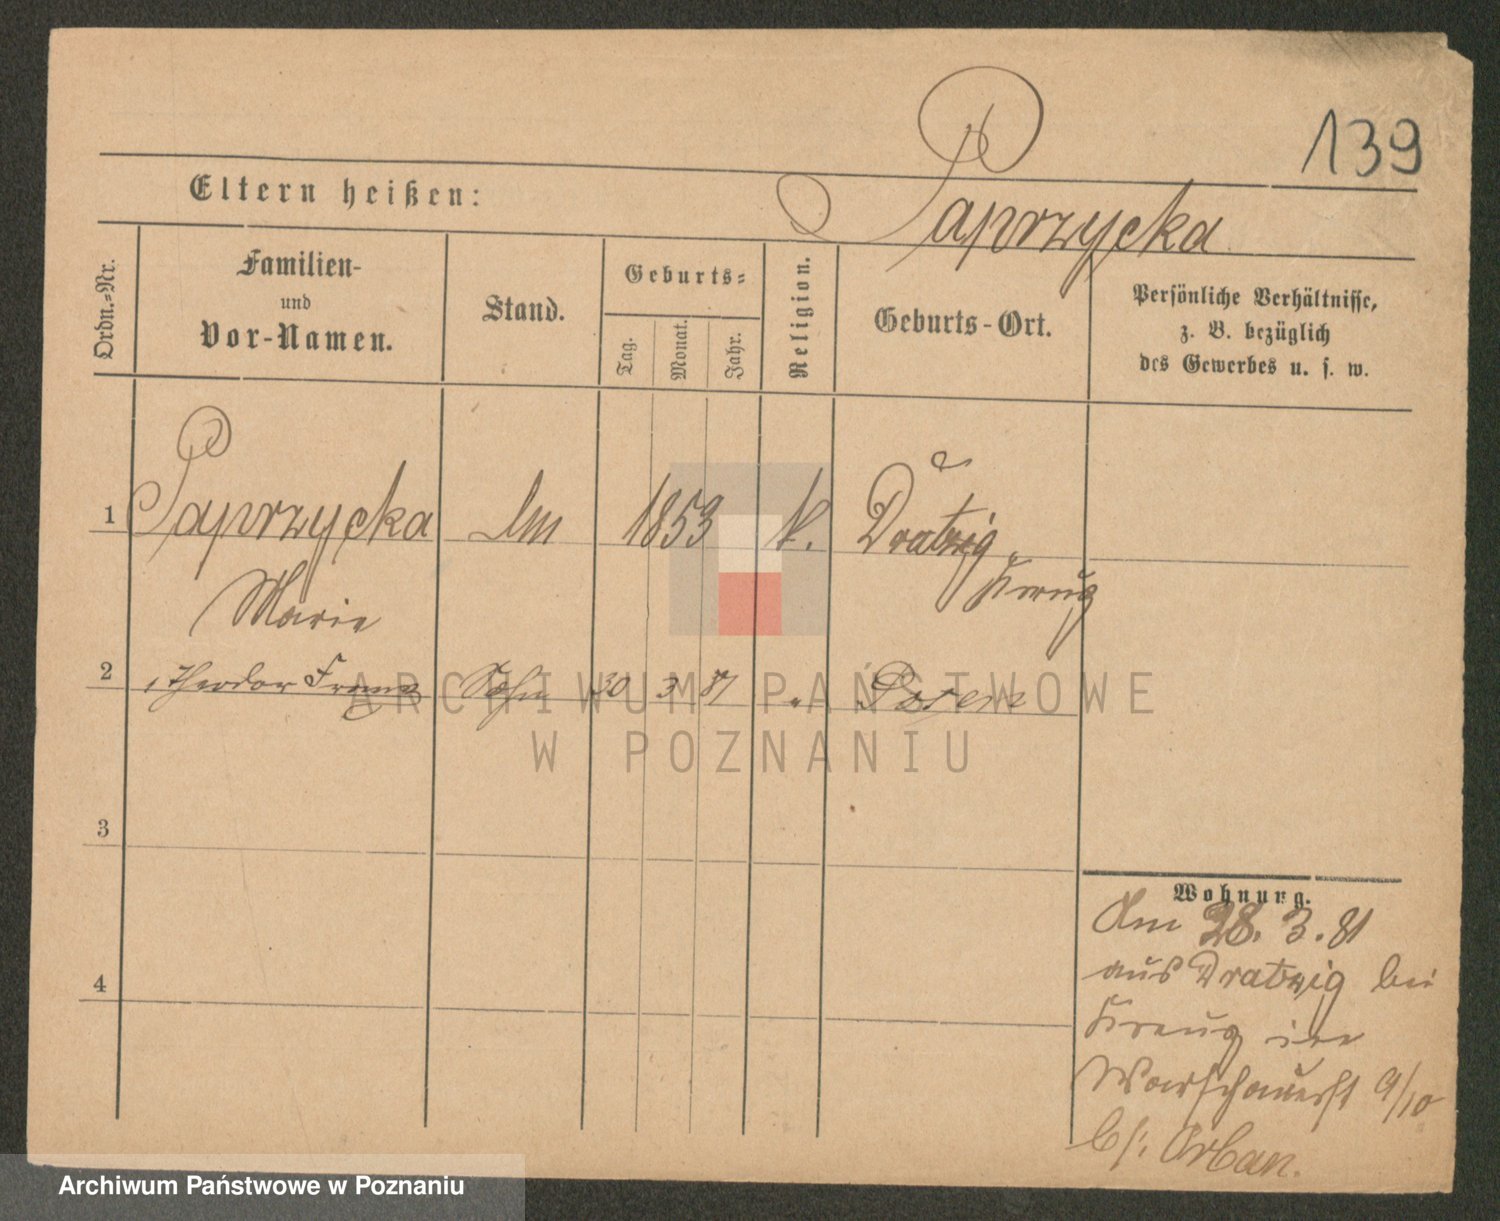 139
Paprzycka
Eltern heißen:
Ordn.=Nr.
Familien-
und
Vor-Namen.
Stand.
Geburts=
Tag.
Monat.
Jahr.
Religion.
Geburts-Ort.
Persönliche Verhältnisse,
z. B. bezüglich
des Gewerbes u. s. w.
1 Paprzycka 1853 K. Dratzig
Kreuz
Marie
2 Theodor Franz Sohn 30 3 81 " Posen
ARCHIWUM PAŃSTWOWE
W POZNANIU
3
4
Wohnung.
Am 28. 3. 81
aus Dratzig bei
Kreuz in
Warschauerst 9/10
bei Orban.
Archiwum Państwowe w Poznaniu